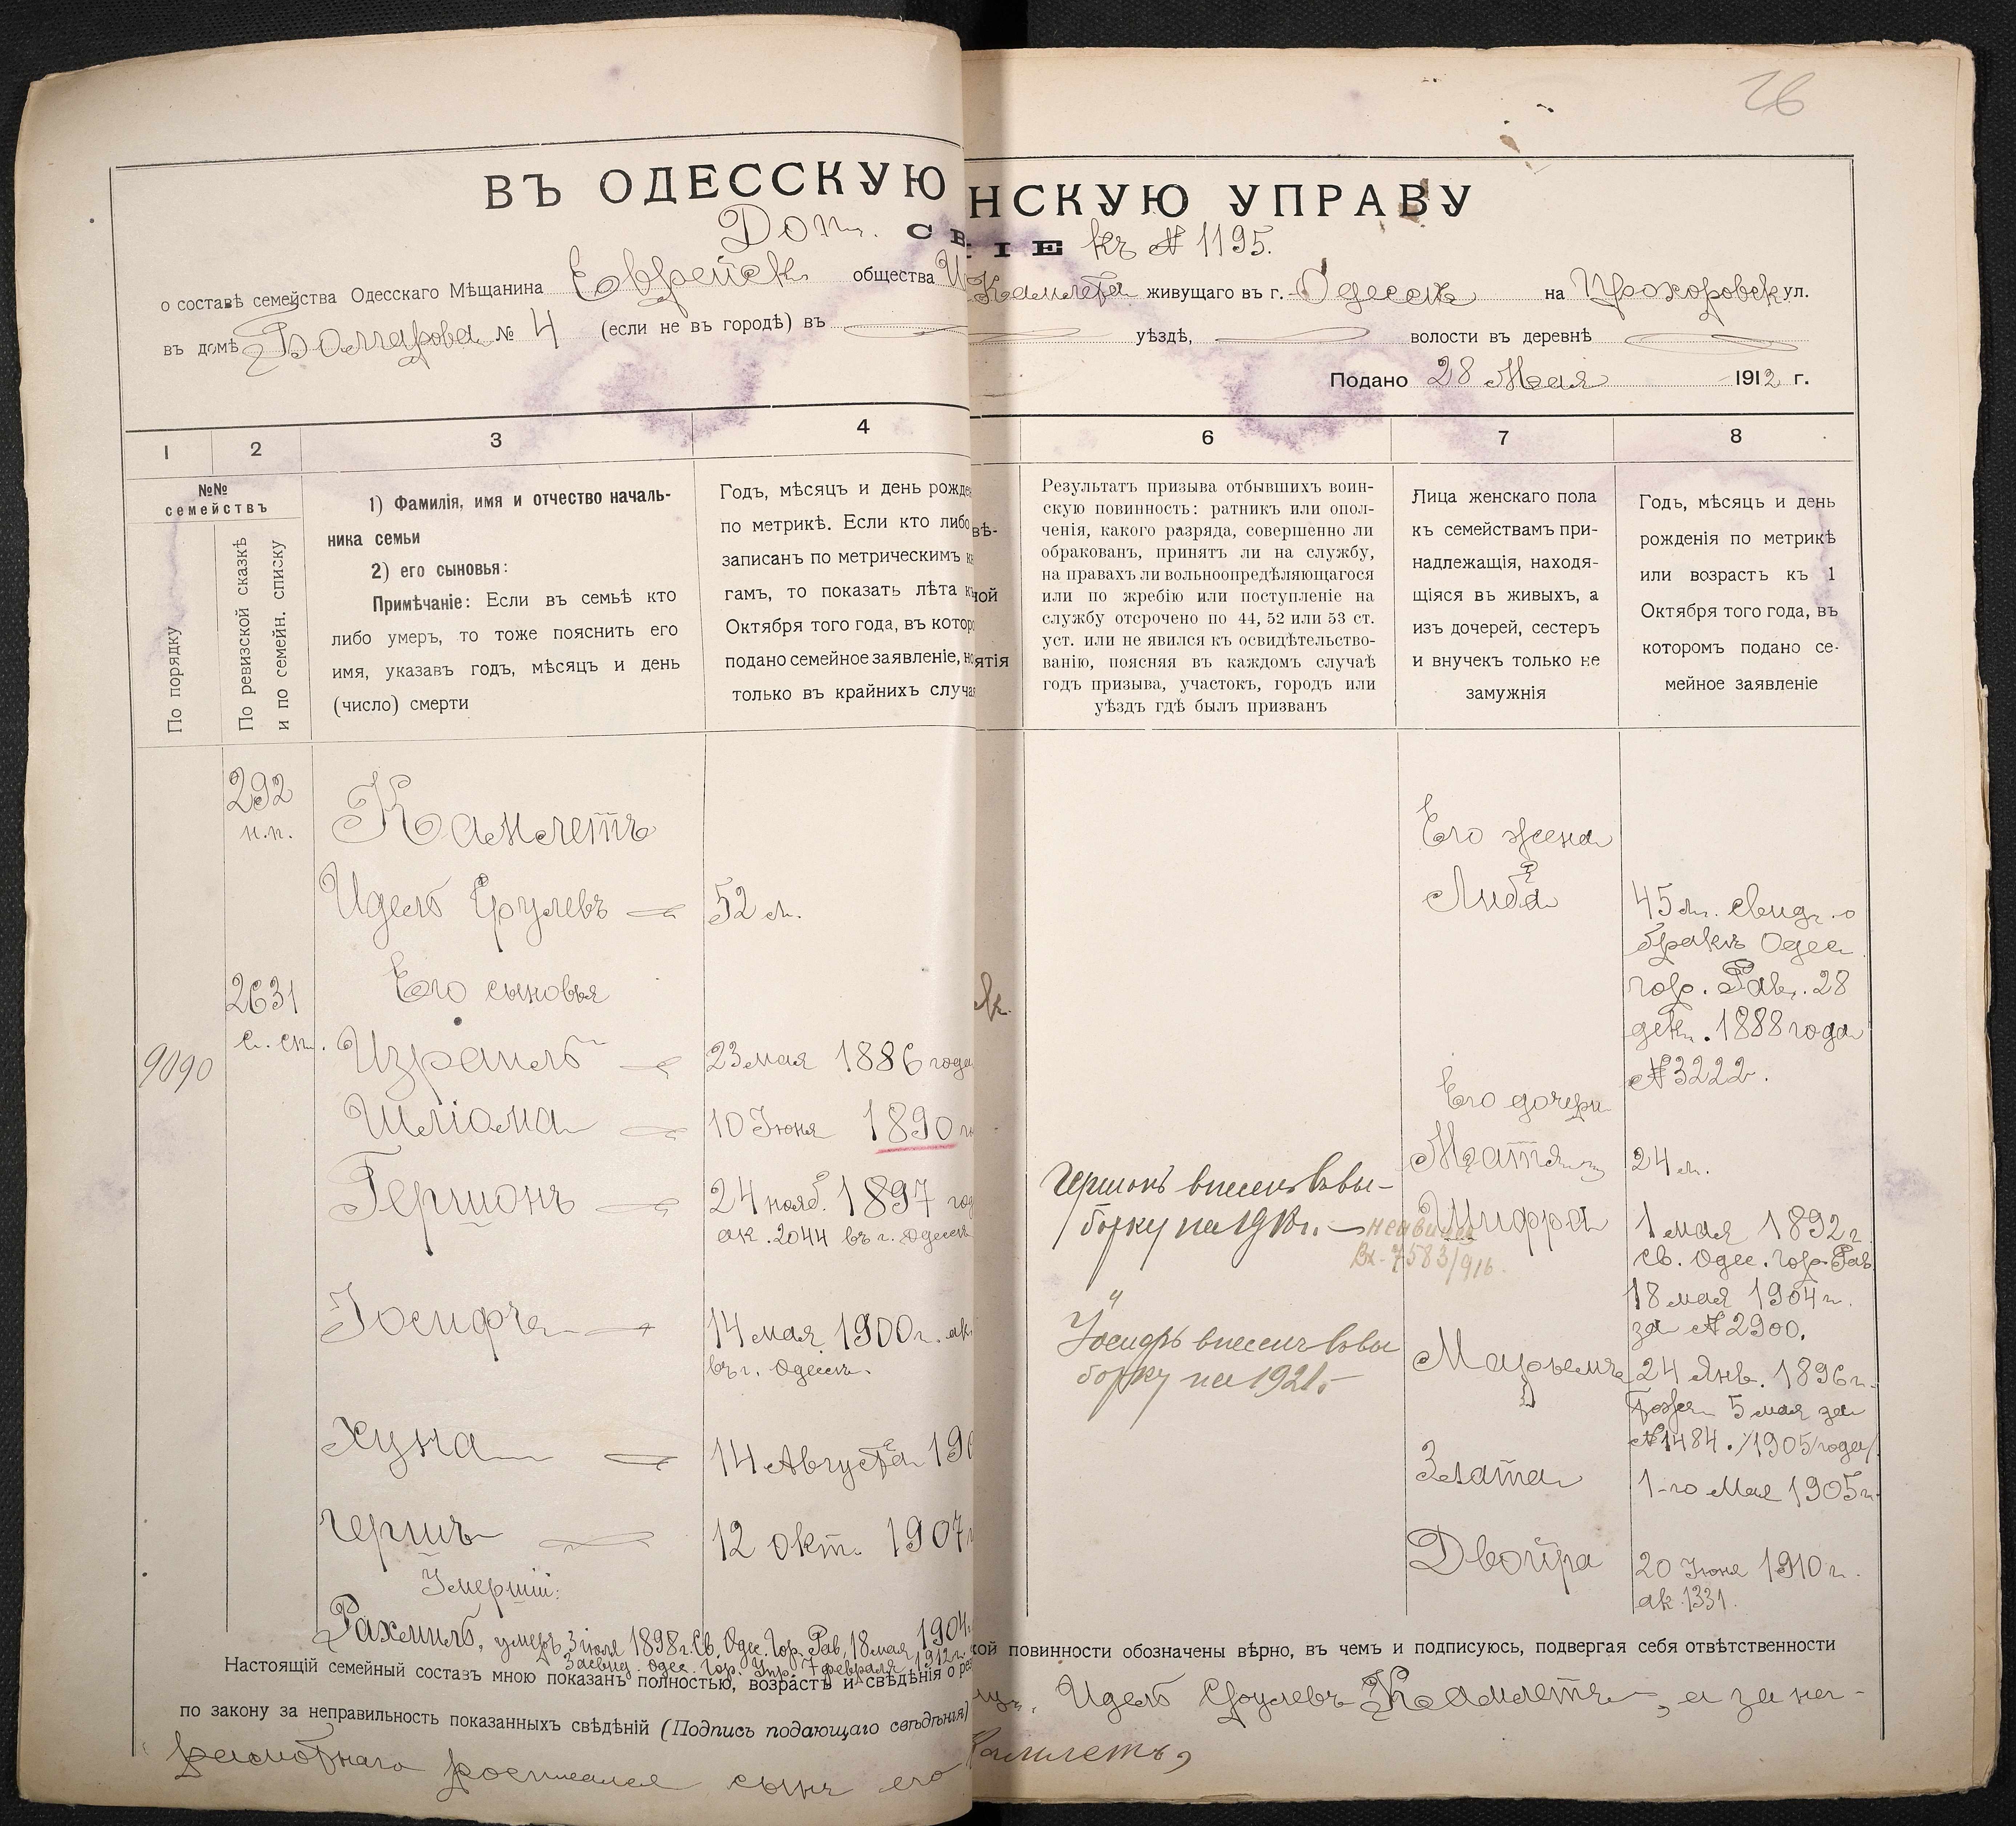 26
ВЪ ОДЕССКУЮ НСКУЮ УПРАВУ
Доп. СВ ІЕ къ № 1195.
о составѣ семейства Одесскаго Мѣщанина Еврейск. общества Камлета живущаго въ г. Одессѣ на Прохоровск ул.
въ домѣ Болгарова № 4 (если не въ городѣ) въ уѣздѣ, волости въ деревнѣ
Подано 28 Мая 1912 г.
1 2 3 4 6 7 8
№№
семействъ
По порядку
По ревизской сказкѣ
и по семейн. списку
1) Фамилія, имя и отчество началь-
ника семьи
2) его сыновья:
Примѣчаніе: Если въ семьѣ кто
либо умеръ, то тоже пояснить его
имя, указавъ годъ, мѣсяцъ и день
(число) смерти
Годъ, мѣсяцъ и день рожде
по метрикѣ. Если кто либо
записанъ по метрическимъ к
гамъ, то показать лѣта к
Октября того года, въ котор
подано семейное заявленіе, н
только въ крайнихъ случа
вѣ-
ной
ятія
Результатъ призыва отбывшихъ воин-
скую повинность: ратникъ или опол-
ченія, какого разряда, совершенно ли
обракованъ, принятъ ли на службу,
на правахъ ли вольноопредѣляющагося
или по жребію или поступленіе на
службу отсрочено по 44, 52 или 53 ст.
уст. или не явился къ освидѣтельство-
ванію, поясняя въ каждомъ случаѣ
годъ призыва, участокъ, городъ или
уѣздъ гдѣ былъ призванъ
Лица женскаго пола
къ семействамъ при-
надлежащія, находя-
щіяся въ живыхъ, а
изъ дочерей, сестеръ
и внучекъ только не
замужнія
Годъ, мѣсяцъ и день
рожденія по метрикѣ
или возрастъ къ 1
Октября того года, въ
которомъ подано се-
мейное заявленіе
292
н.п.
2631
с. сп.
9090
Камлетъ
Идель Срулевъ 52 л.
Его сыновья
Израиль 23 мая 1886 года
Шліома 10 Іюня 1890
Гершонъ 24 нояб. 1897 год
ак. 2044 въ г. Одессѣ
Іосифъ 14 мая 1900 г. ак.
въ г. Одессѣ.
Хуна 14 Августа 190
Гершъ 12 окт. 1907
Умершій:
Рахмиль, умеръ 3 іюля 1898 г. Св. Одес. Гор. Рав. 18 мая 1904.
Засвид. Одес. Гор. Упр. 7 февраля 1912 г.
Гершонъ внесенъ въ вы-
борку на 1918 г. — не явился
Вх. 7583/916.
Іосифъ внесенъ въ вы
борку на 1921.
Его жена
Либа
45 л. свид. о
бракѣ Одес
гор. Рав. 28
дек. 1888 года
№ 3222.
Его дочери
Матля 24 л.
Шифра 1 мая 1892 г
св. Одес. Гор. Рав.
18 мая 1904 г.
за № 2900.
Марьемъ 24 Янв. 1896 г.
тоже 5 мая за
№ 1484. /1905 года/.
Злата 1-го Мая 1905 г.
Двойра 20 Іюня 1910 г.
ак. 1331.
Настоящій семейный составъ мною показанъ полностью, возрастъ и свѣдѣнія о ре кой повинности обозначены вѣрно, въ чемъ и подписуюсь, подвергая себя отвѣтственности
по закону за неправильность показанныхъ свѣдѣній (Подпись подающаго свѣдѣнія) Идель Срулевъ Камлетъ, а за не-
грамотнаго росписался сынъ его Камлетъ,